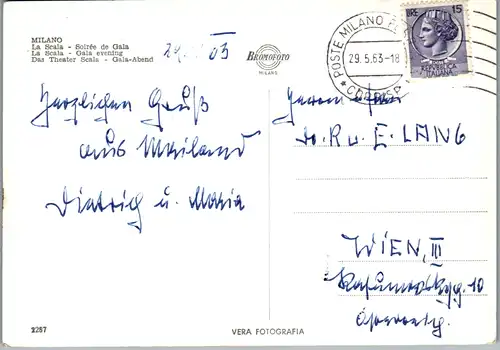 MILANO
La Scala - Soirée de Gala
La Scala - Gala evening
Das Theater Scala - Gala-Abend
BROMOFOTO
MILANO
POSTE MILANO
29.5.63-18
CORRISP.
LIRE 15
ITALIANA
Herzlichen Gruß
aus Mailand
Dietrich u. Maria
Herrn Frau
Dr. R u. E. LANG
WIEN, III
10
Österreich
2287
VERA FOTOGRAFIA